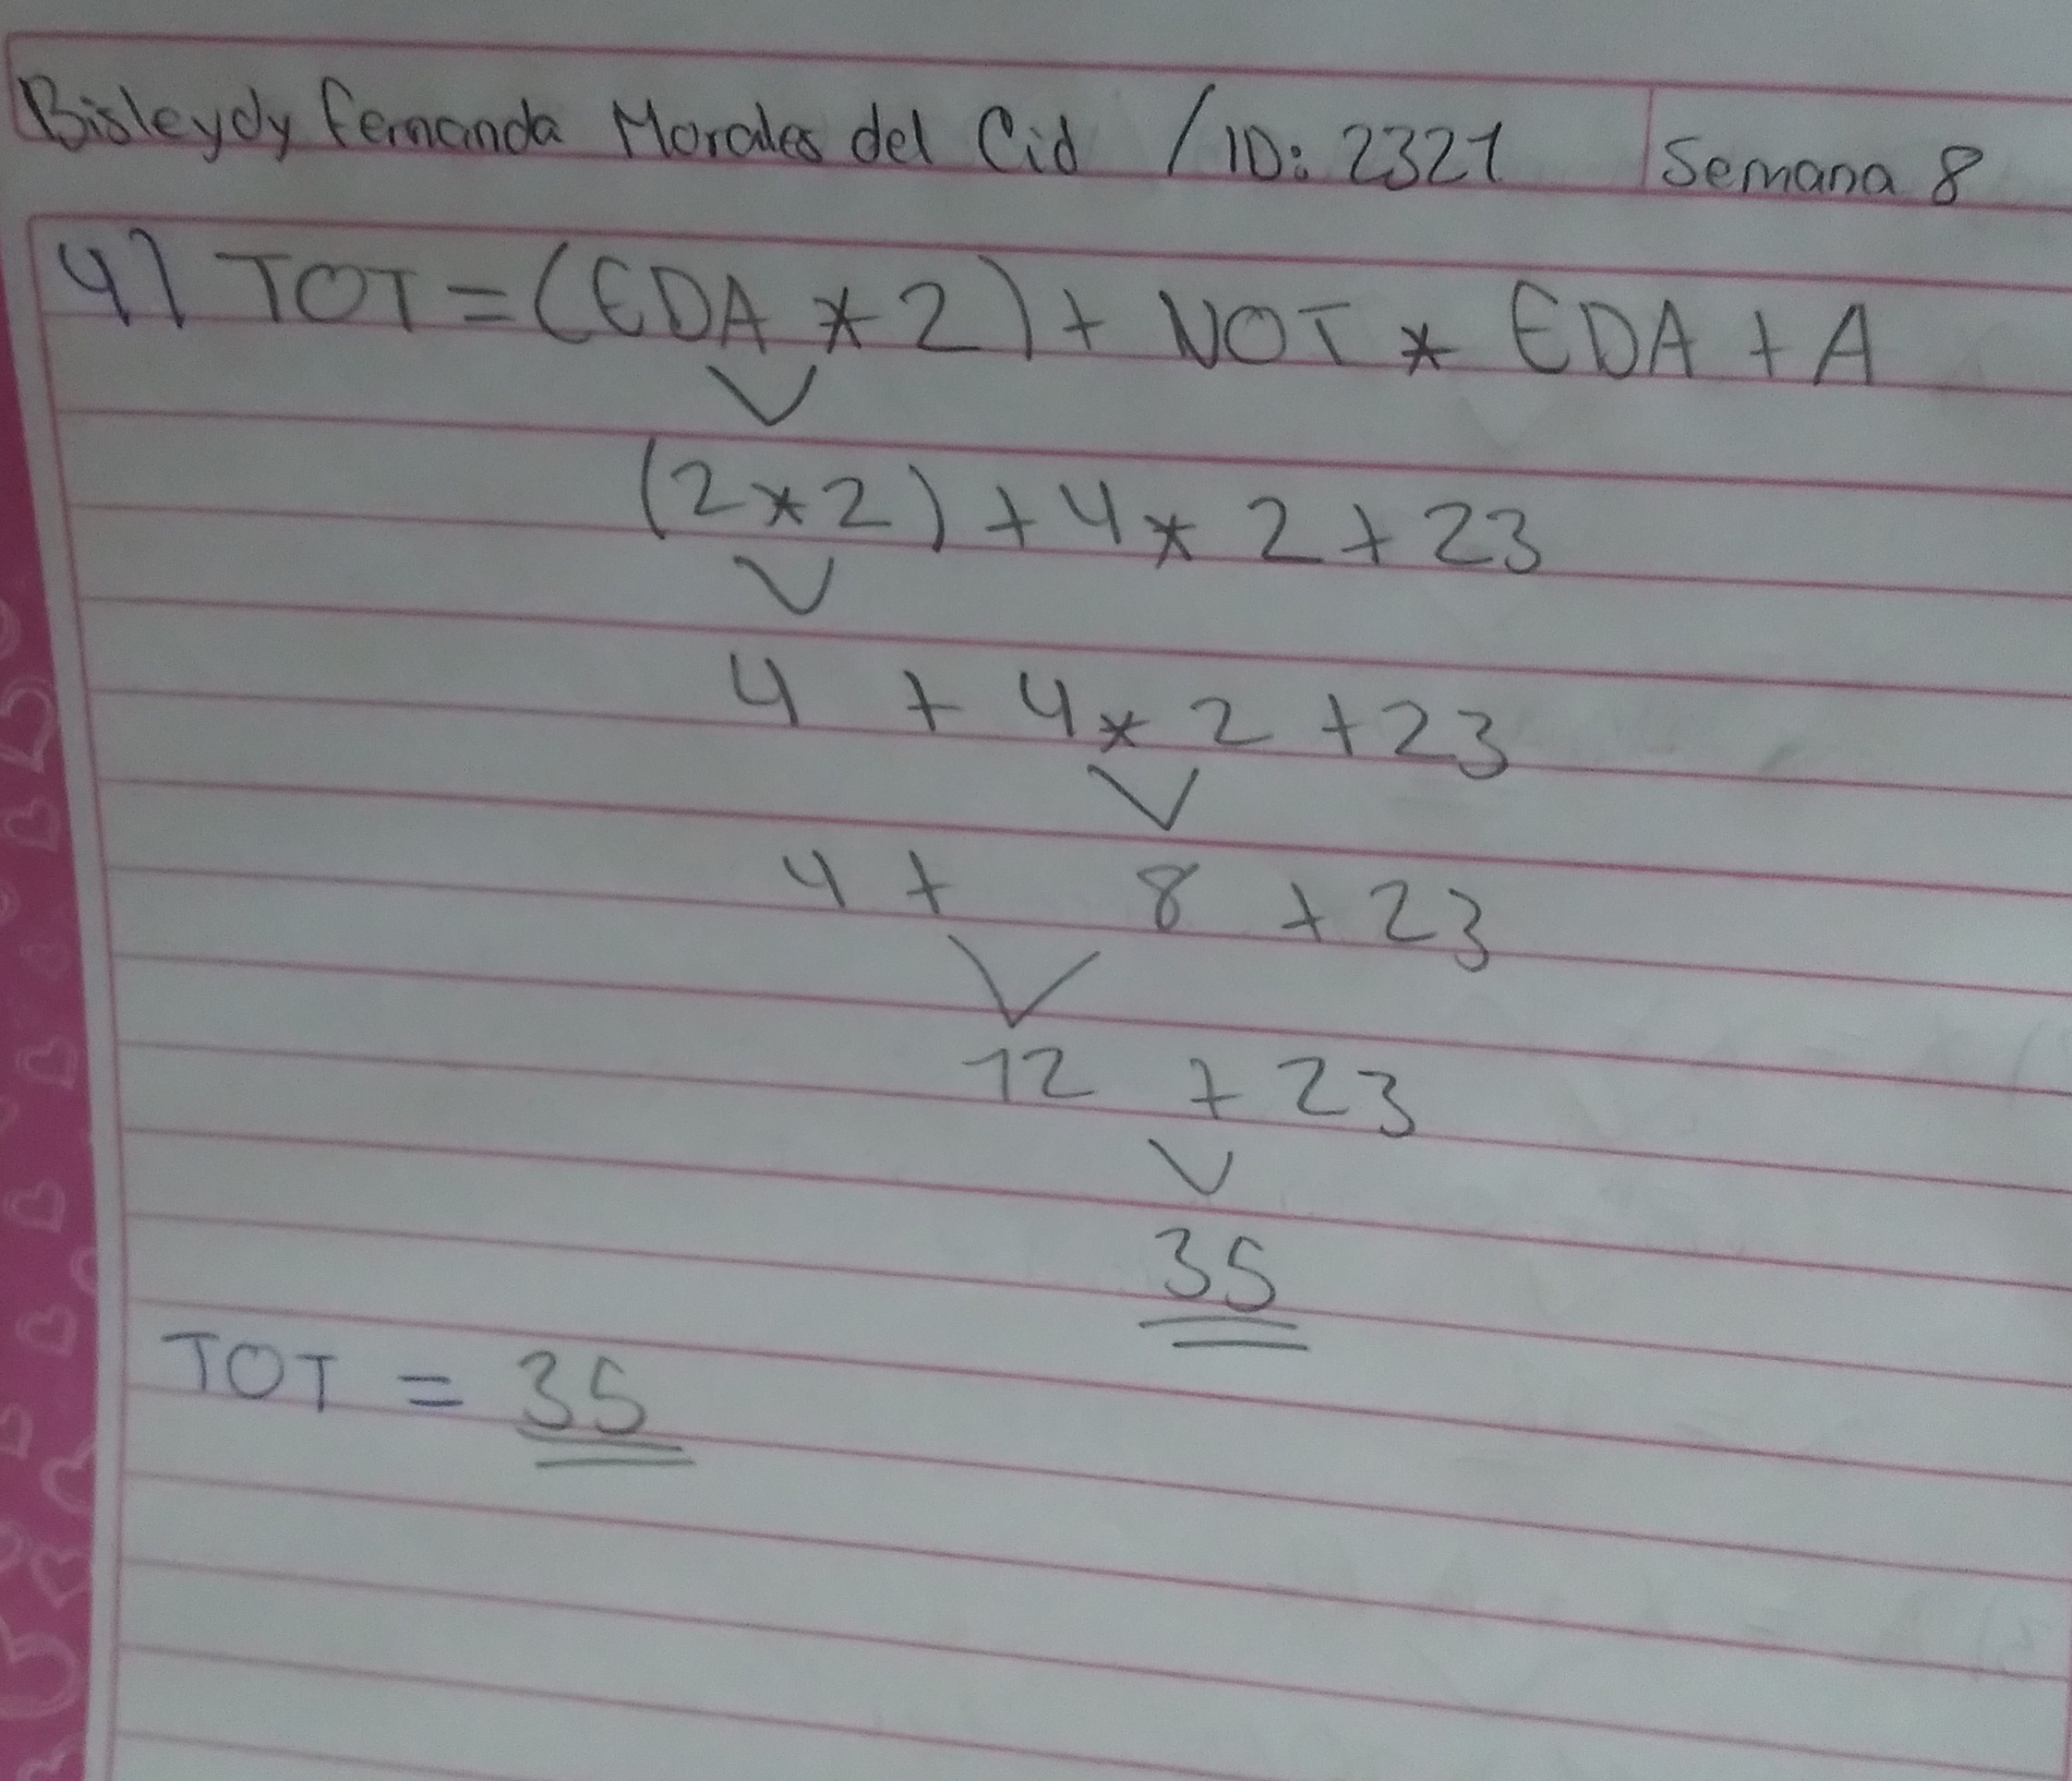 Bisleydy Fernanda Morales del Cid / ID: 2321 Semana 8
4) TOT = (EDA * 2) + NOT * EDA + A
(2 * 2) + 4 * 2 + 23
4 + 4 * 2 + 23
4 + 8 + 23
12 + 23
35
TOT = 35